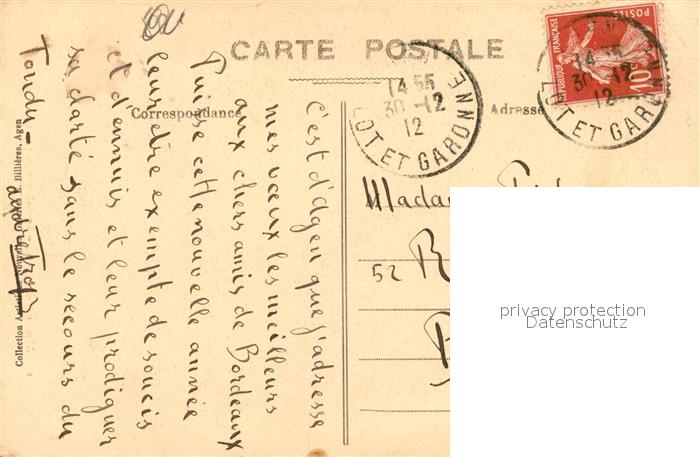 CARTE POSTALE
Correspondance
Adresse
RÉPUBLIQUE FRANÇAISE
POSTES
10
14 55
30-12
12
LOT ET GARONNE
14 55
30-12
12
LOT ET GARONNE
C'est d'Agen que j'adresse
mes vœux les meilleurs
aux chers amis de Bordeaux
Puisse cette nouvelle année
leur être exempte de soucis
et d'ennuis et leur prodiguer
sa clarté sans le secours du
Tondu
Collection Artistique E. Billières, Agen
Mada
52 R
B
privacy protection
Datenschutz